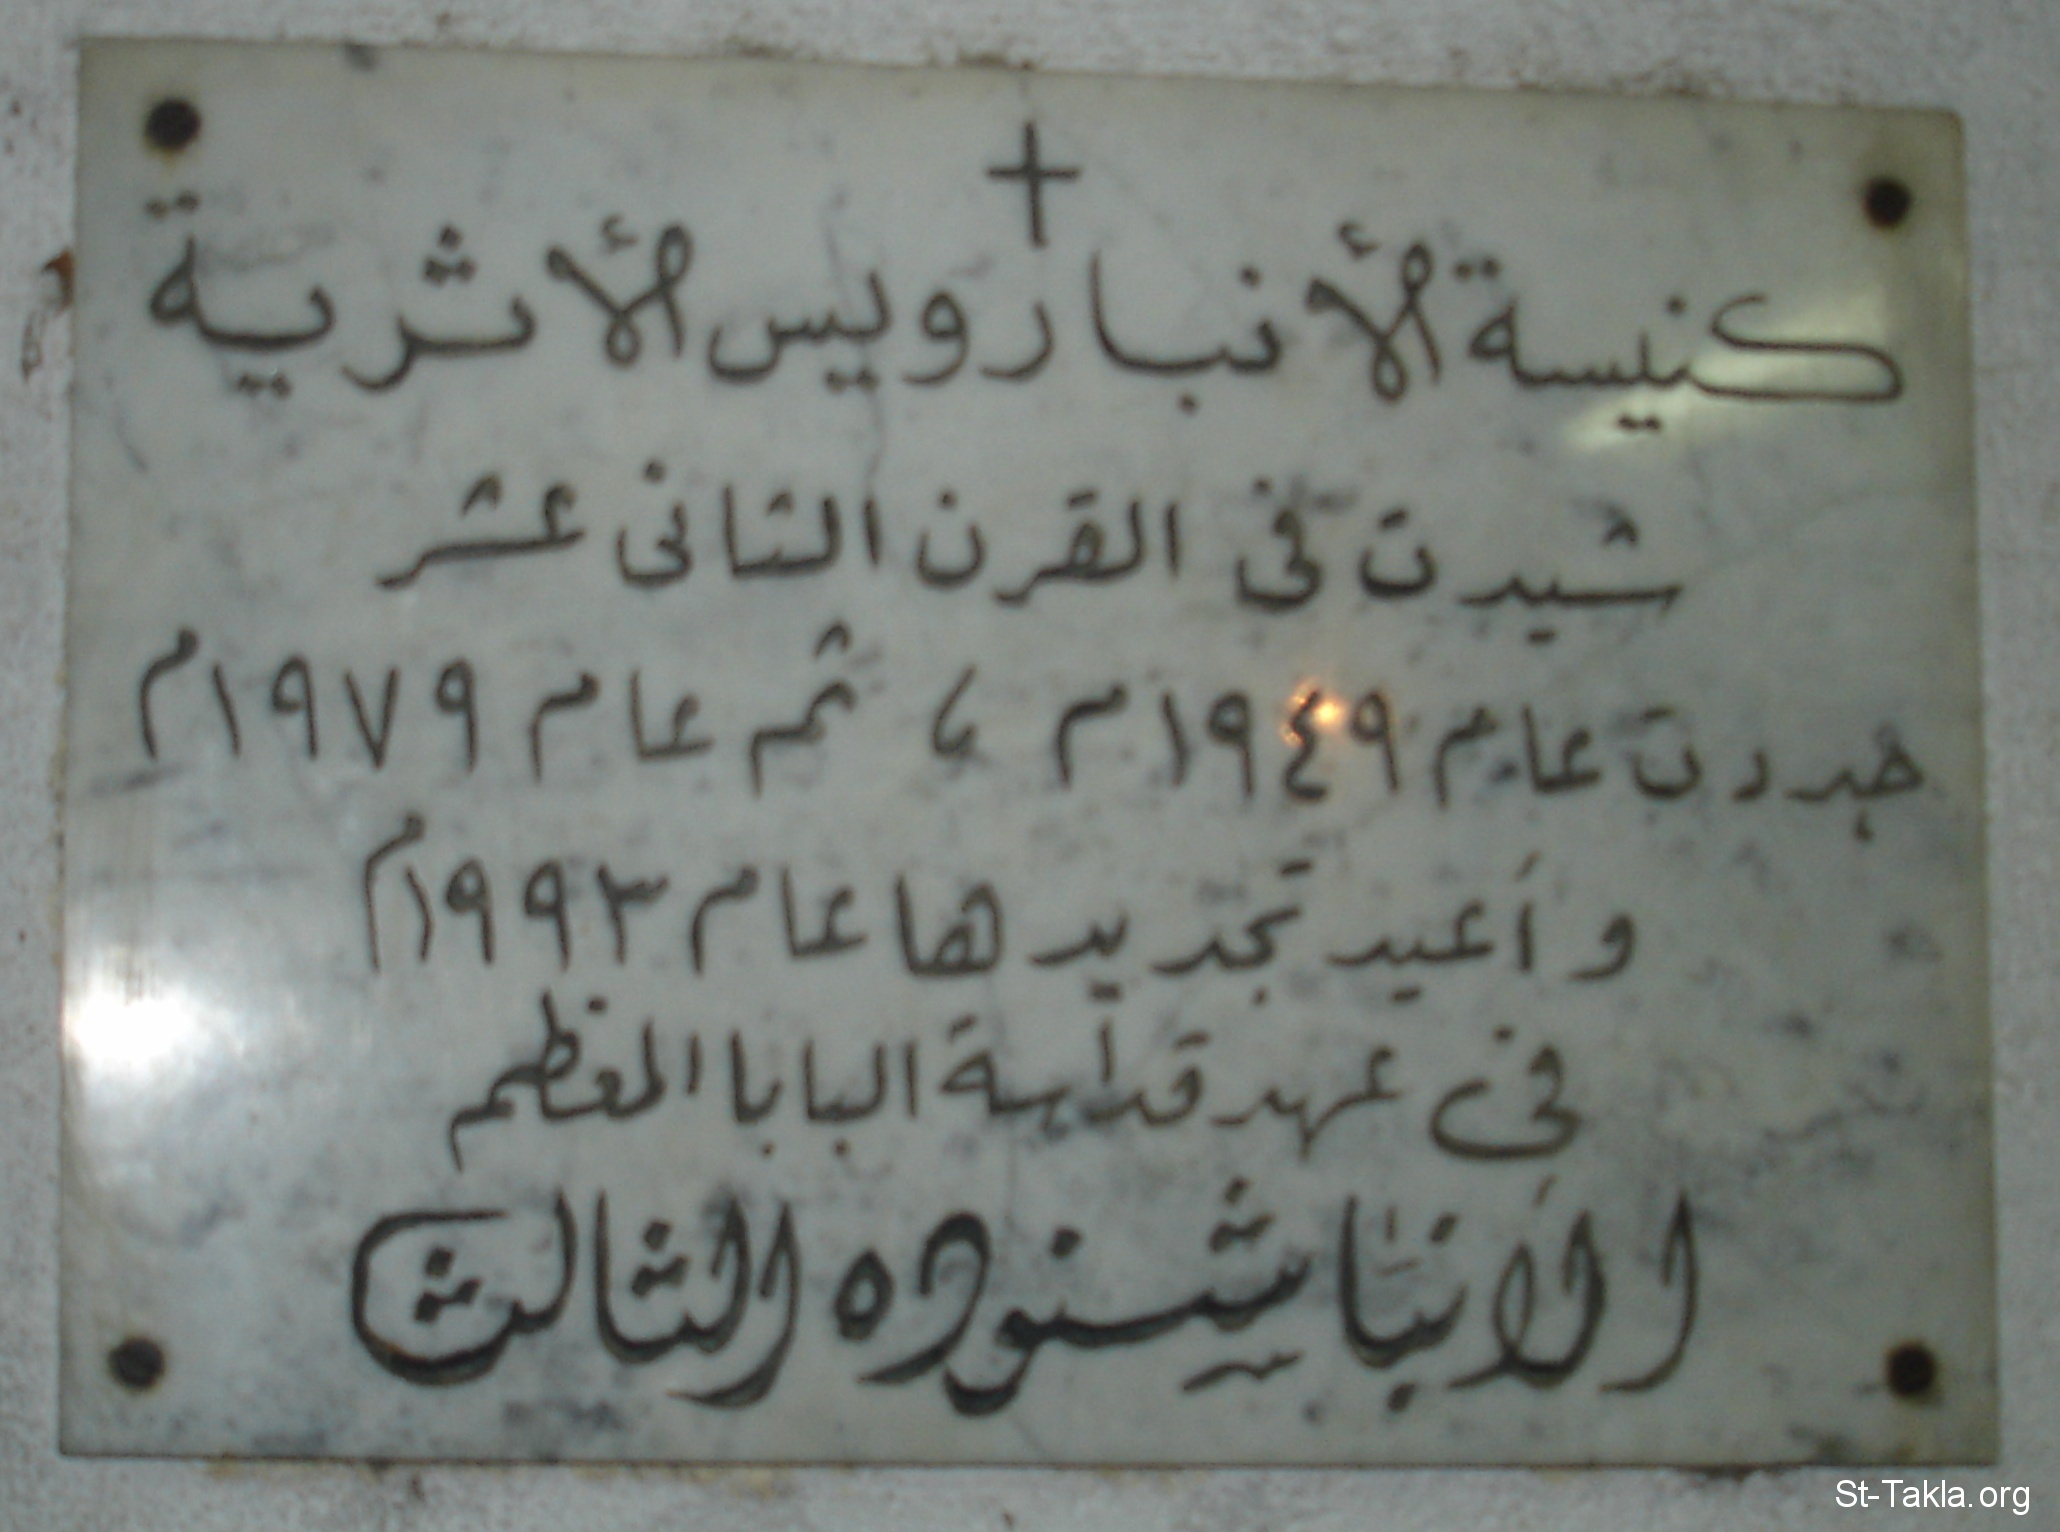 كنيسة الأنبا رويس الأثرية
شيدت فى القرن الثانى عشر
جددت عام ١٩٤٩م ، ثم عام ١٩٧٩م
وأعيد تجديدها عام ١٩٩٣م
فى عهد قداسة البابا المعظم
الأنبا شنوده الثالث
St-Takla.org